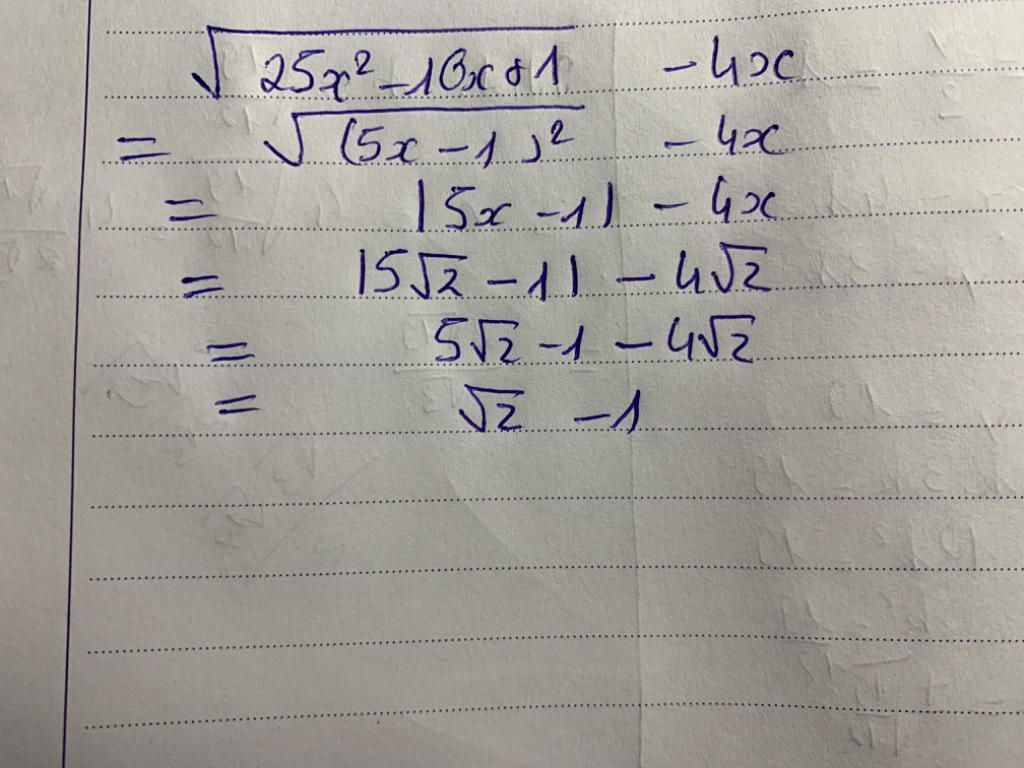 √(25x² - 10x + 1) - 4x
= √((5x - 1)²) - 4x
= |5x - 1| - 4x
= |5√2 - 1| - 4√2
= 5√2 - 1 - 4√2
= √2 - 1